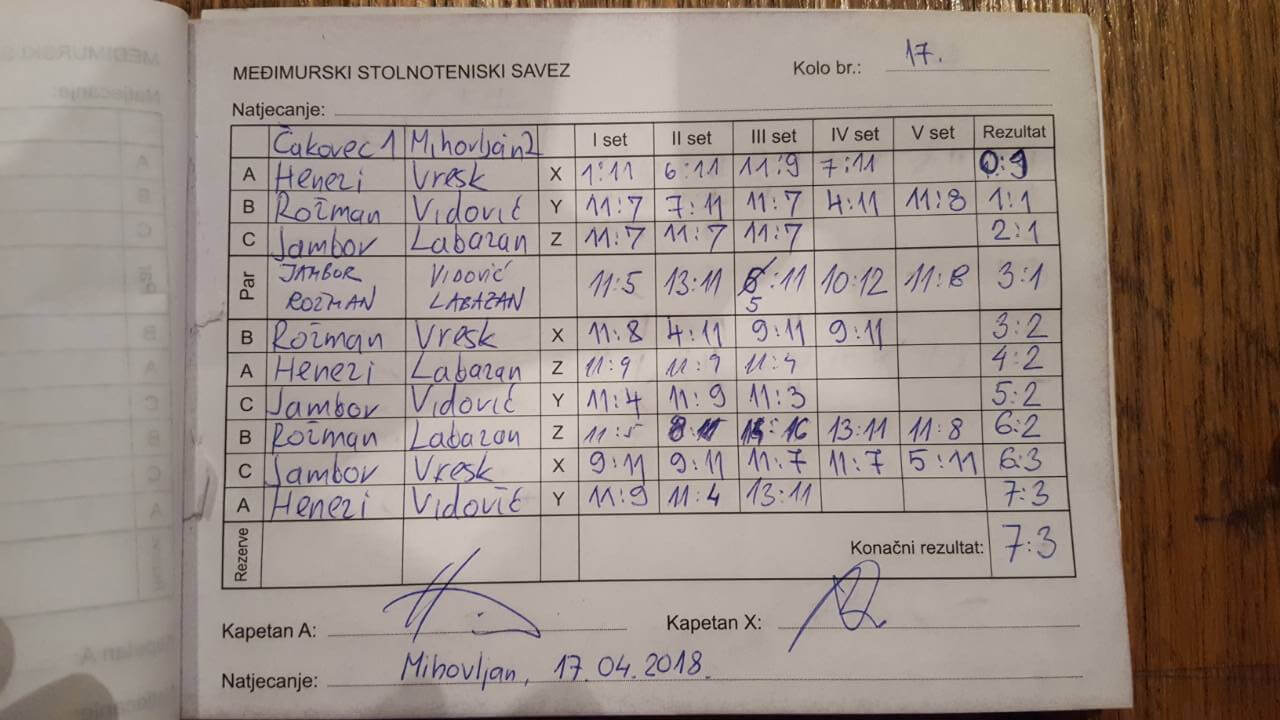 MEĐIMURSKI STOLNOTENISKI SAVEZ Kolo br.: 17.
Natjecanje:
Čakovec 1 Mihovljan 2 I set II set III set IV set V set Rezultat
A Henezi Vresk X 1:11 6:11 11:9 7:11
B Rožman Vidović Y 11:7 7:11 11:7 4:11 11:8 1:1
C Jambor Labazan Z 11:7 11:7 11:7 2:1
Par JAMBOR VIDOVIĆ 11:5 13:11 5:11 10:12 11:8 3:1
ROŽMAN LABAZAN
B Rožman Vresk X 11:8 4:11 9:11 9:11 3:2
A Henezi Labazan Z 11:9 11:9 11:4 4:2
C Jambor Vidović Y 11:4 11:9 11:3 5:2
B Rožman Labazan Z 11:5 8:11 14:16 13:11 11:8 6:2
C Jambor Vresk X 9:11 9:11 11:7 11:7 5:11 6:3
A Henezi Vidović Y 11:9 11:4 13:11 7:3
Rezerve Konačni rezultat: 7:3
Kapetan A: Kapetan X:
Natjecanje: Mihovljan, 17.04.2018.